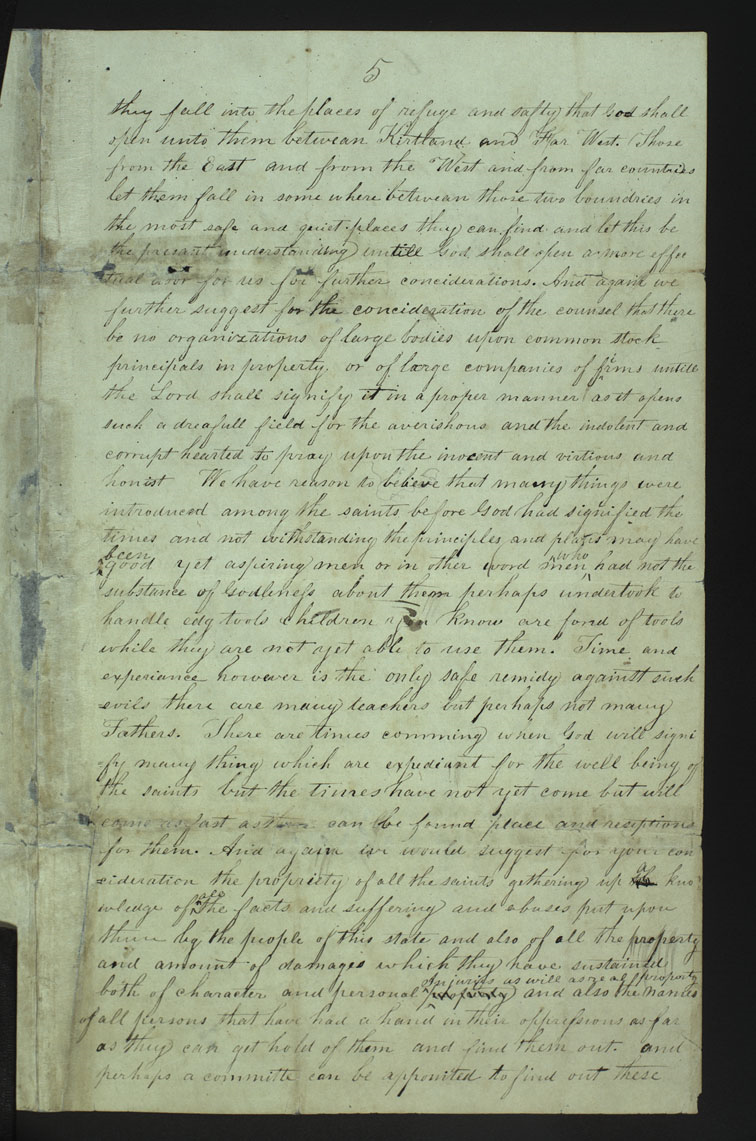 5
they fall into the places of refuge and safty that God shall
open unto them betwean Kirtland and Far West. Those
from the East and from the West and from far countries
let them fall in some where betwean those two boundries in
the most safe and quiet places they can find and let this be
the present understanding untill God shall open a more effec
tual door for us for further conciderations. And again we
further suggest for the concideration of the counsel that there
be no organizations of large bodies upon common stock
principals in property or of large companies of firms untill
the Lord shall signify it in a proper manner as it opens
such a dreafull field for the averishous and the indolent and
corrupt hearted to pray upon the inocent and virtious and
honist We have reason to believe that many things were
introduced among the saints before God had signified the
times and not withstanding the principles and plans may have
been
good yet aspiring men or in other word men who had not the
substance of Godleness about them perhaps undertook to
handle edg tools children you know are fond of tools
while they are not yet able to use them. Time and
experiance however is the only safe remidy against such
evils there are many teachers but perhaps not many
Fathers. There are times comming when God will signi
=fy many thing which are expediant for the well being of
the saints but the times have not yet come but will
come as fast as there can be found place and reseptions
for them. And again we would suggest for your con
=cideration the propriety of all the saints gethering up a kno
wledge of all the facts and suffering and abuses put upon
them by the people of this state and also of all the property
and amount of damages which they have sustained
both of character and personal injuries as will as real property and also the names
of all persons that have had a hand in their oppressions as far
as they can get hold of them and find them out. and
perhaps a committe can be appointed to find out these